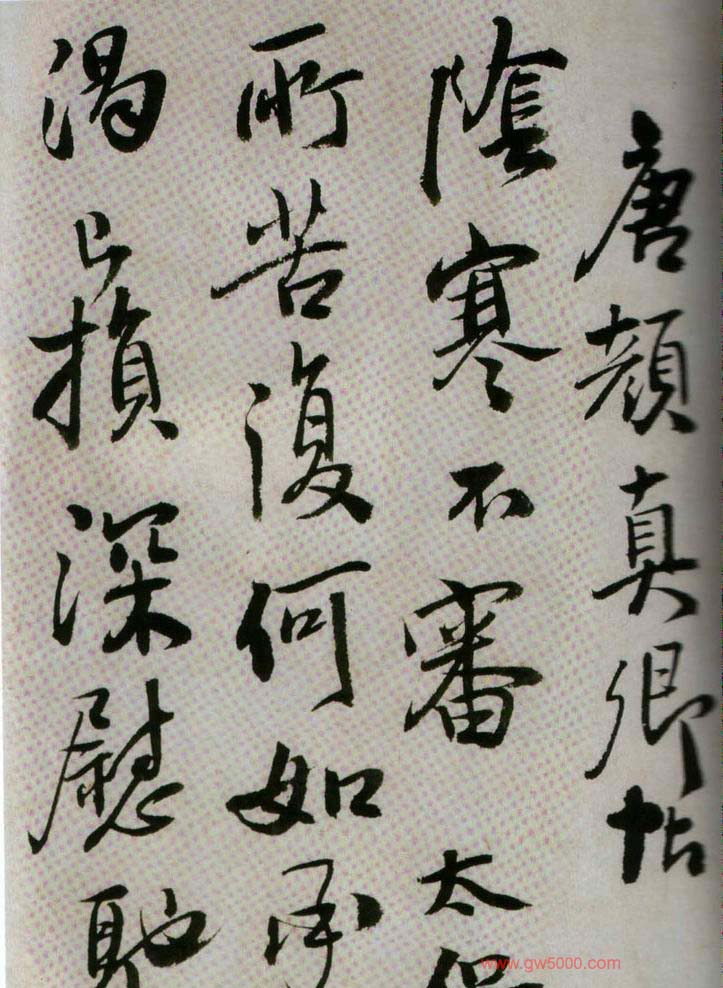 唐顏真卿帖
陰寒不審太保
所苦復何如承
渴已損深慰馳
www.gw5000.com